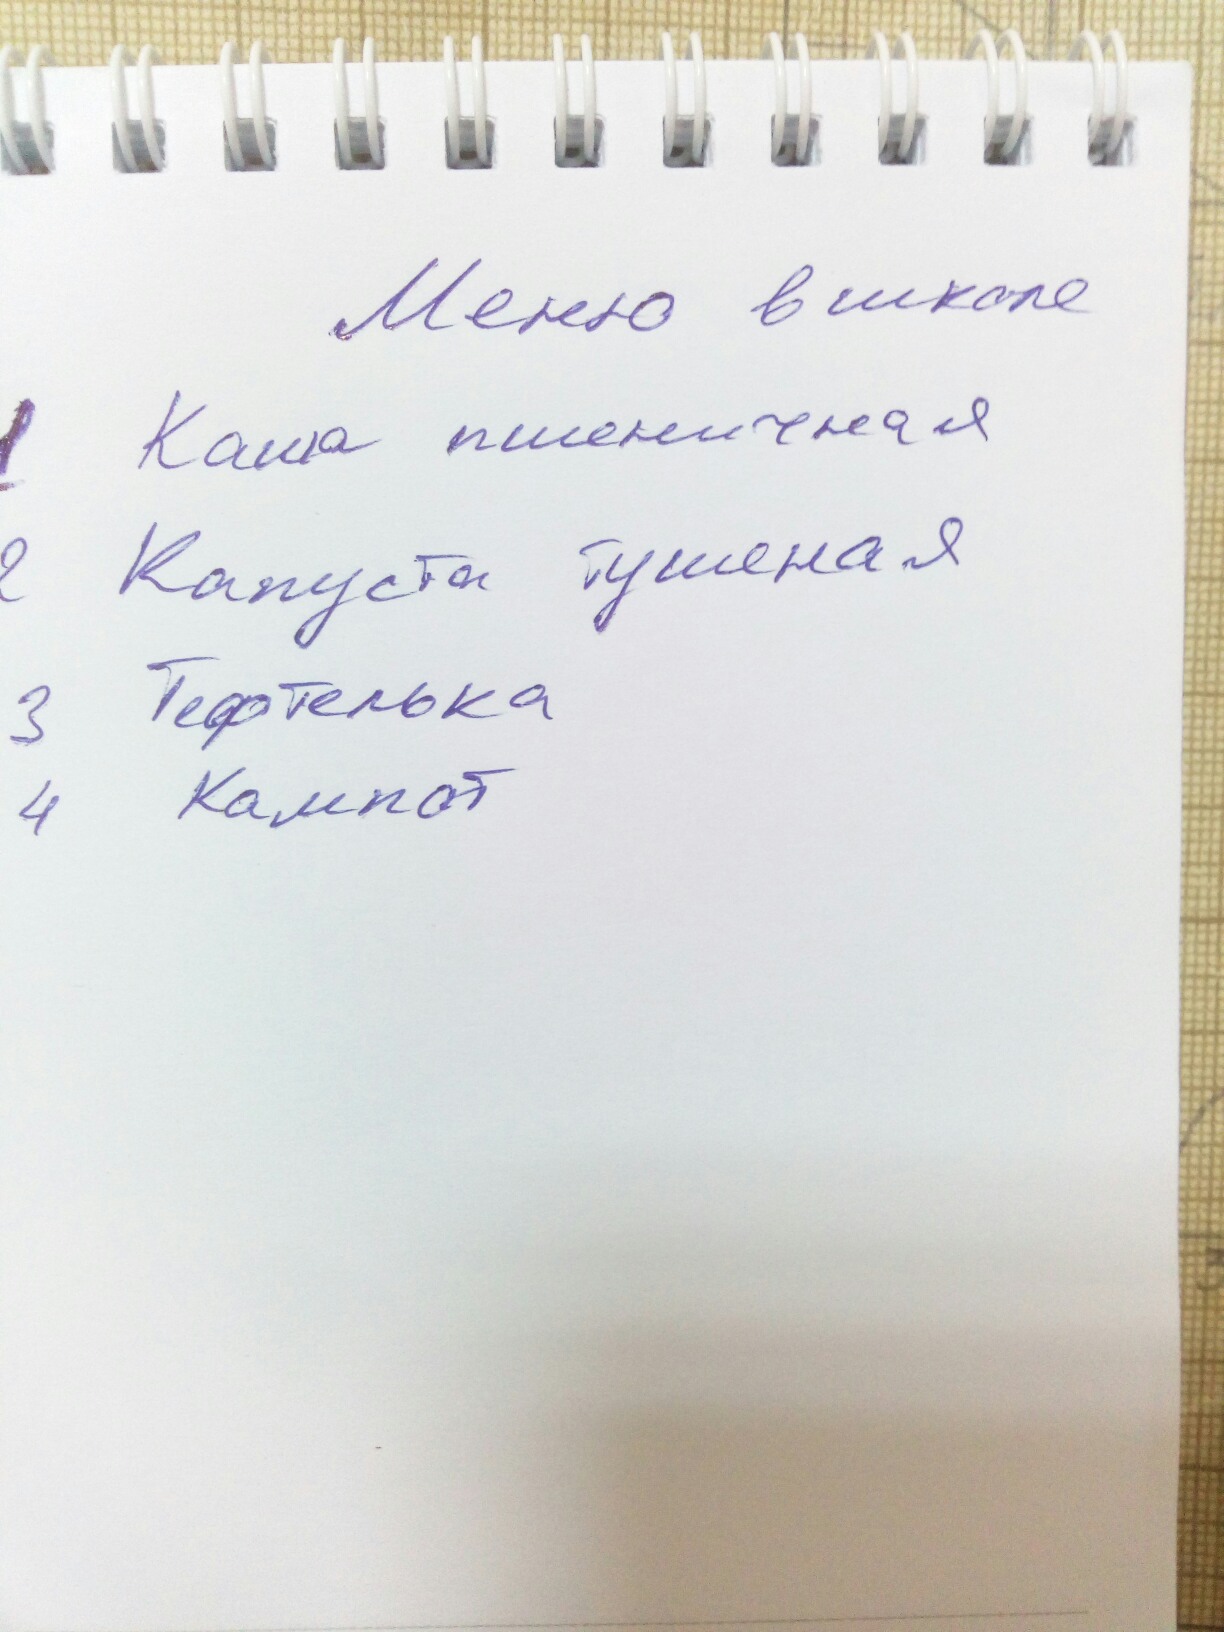 Меню в школе
1 Каша пшеничная
2 Капуста тушеная
3 Тефтелька
4 Кампот